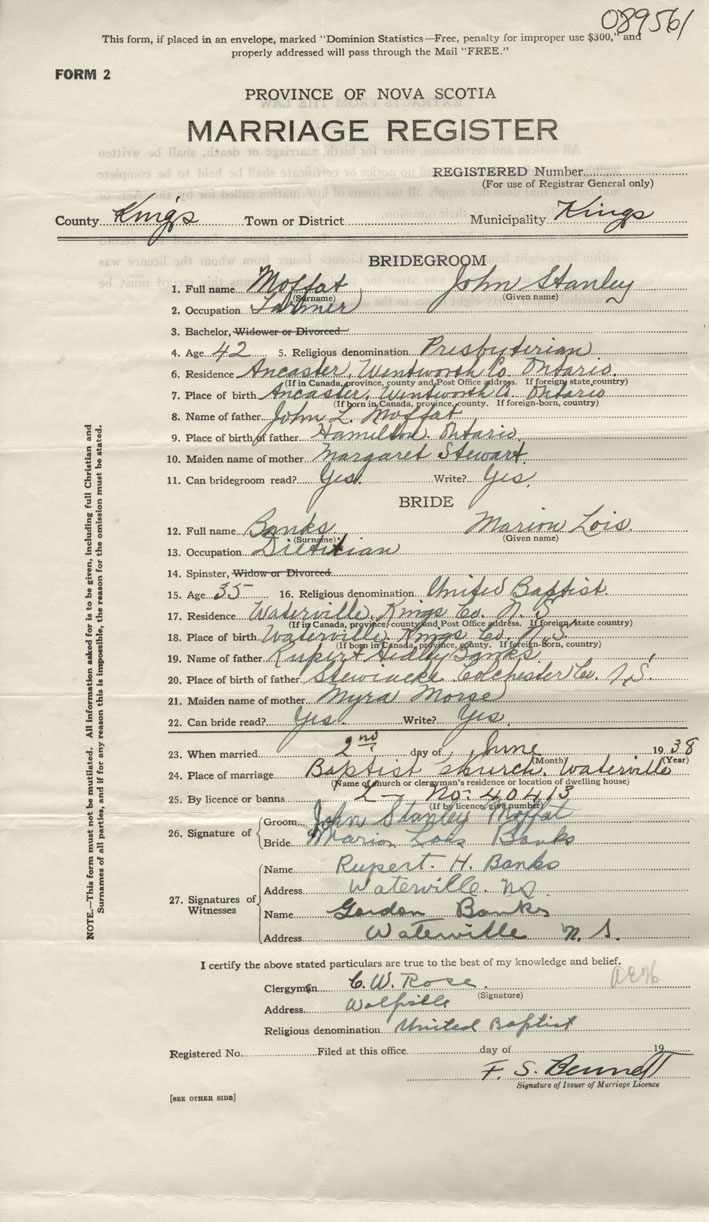 089561
This form, if placed in an envelope, marked "Dominion Statistics—Free, penalty for improper use $300," and
properly addressed will pass through the Mail "FREE."
FORM 2
PROVINCE OF NOVA SCOTIA
MARRIAGE REGISTER
REGISTERED Number
(For use of Registrar General only)
County King's Town or District Municipality Kings
BRIDEGROOM
1. Full name Moffat John Stanley
(Surname) (Given name)
2. Occupation Farmer
3. Bachelor, Widower or Divorced
4. Age 42 5. Religious denomination Presbyterian
6. Residence Ancaster, Wentworth Co. Ontario.
(If in Canada, province, county and Post Office address. If foreign state, country)
7. Place of birth Ancaster, Wentworth Co. Ontario
(If born in Canada, province, county. If foreign-born, country)
8. Name of father John L. Moffat
9. Place of birth of father Hamilton. Ontario
10. Maiden name of mother Margaret Stewart.
11. Can bridegroom read? Yes. Write? Yes.
BRIDE
12. Full name Banks Marion Lois.
(Surname) (Given name)
13. Occupation Dietitian
14. Spinster, Widow or Divorced
15. Age 35 16. Religious denomination United Baptist.
17. Residence Waterville, Kings Co. N.S.
(If in Canada, province, county and Post Office address. If foreign, state country)
18. Place of birth Waterville, Kings Co. N.S.
(If born in Canada, province, county. If foreign-born, country)
19. Name of father Rupert Hedley Banks.
20. Place of birth of father Stewiacke Colchester Co. N.S.
21. Maiden name of mother Myra Morse
22. Can bride read? Yes. Write? Yes.
23. When married 2nd day of June 1938
(Month) (Year)
24. Place of marriage Baptist church. Waterville
(Name of church or clergyman's residence or location of dwelling house)
25. By licence or banns L— No: 40413
(If by licence, give number)
26. Signature of Groom John Stanley Moffat
Bride Marion Lois Banks
27. Signatures of Witnesses
Name Rupert. H. Banks
Address Waterville. N.S.
Name Gordon Banks
Address Waterville N.S.
I certify the above stated particulars are true to the best of my knowledge and belief.
Clergyman C. W. Rose
(Signature)
Address Wolfville
Religious denomination United Baptist
Registered No. Filed at this office day of 19
F. S. Bennett
Signature of Issuer of Marriage Licence
[SEE OTHER SIDE]
NOTE.—This form must not be mutilated. All information asked for is to be given, including full Christian and
Surnames of all parties, and if for any reason this is impossible, the reason for the omission must be stated.